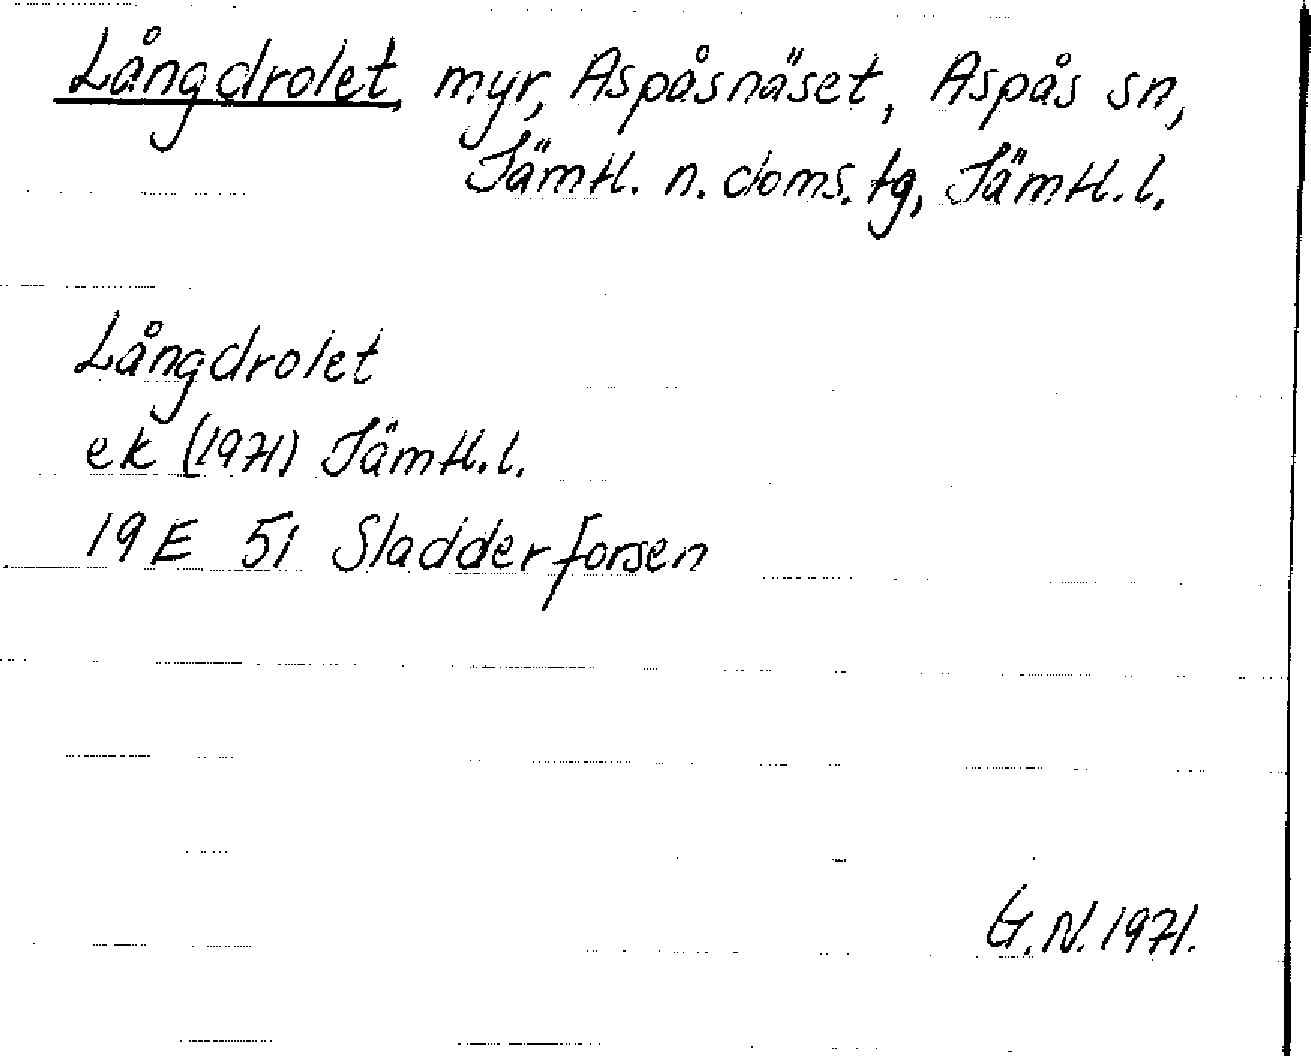 Långdrolet, myr, Aspåsnäset, Aspås sn,
Jämtl. n. doms. tg, Jämtl. l.
Långdrolet
ek (1971) Jämtl. l.
19 E 51 Sladderforsen
G. N. 1971.